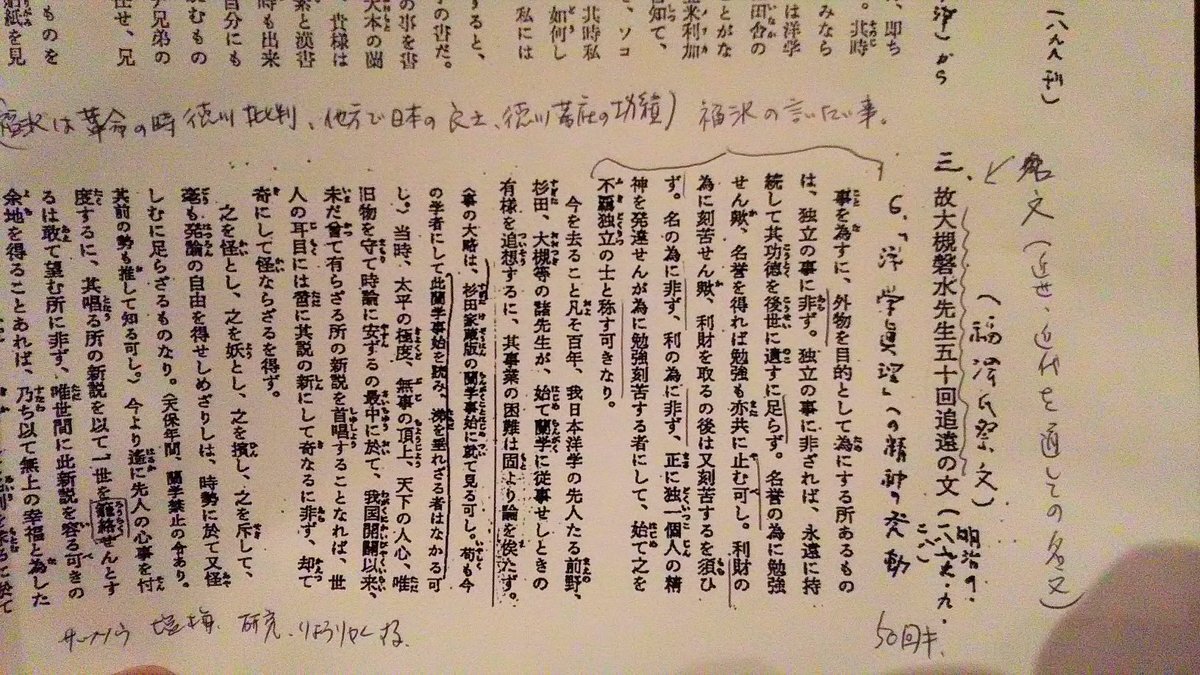 八九九刊)
から
、即ち
。此時
みなら
は洋学
田舎の
とがな
米利加
告知て、
、ソコ
此時私
如何し
私には
すると、
の書だ。
の事を書
大本の蘭
、貴様は
素と漢書
時も出来
自分にも
読むもの
子兄弟の
任せ、兄
ものを
紙を見
は革命の時徳川批判、他方で日本の良士、徳川幕府の功績) 福沢の言いたい事。
名文(近世、近代を通しての名文)
(福沢氏祭文)
三、故大槻磐水先生五十回追遠の文(一八七六・九・
明治9・
6.「洋学真理」への精神の発動
50回キ
事を為すに、外物を目的として為にする所あるもの
は、独立の事に非ず。独立の事に非ざれば、永遠に持
続して其功徳を後世に遺すに足らず。名誉の為に勉強
せん歟、名誉を得れば勉強も亦共に止む可し。利財の
為に刻苦せん歟、利財を取るの後は又刻苦するを須ひ
ず。名の為に非ず、利の為に非ず、正に独一個人の精
神を発達せんが為に勉強刻苦する者にして、始て之を
不羈独立の士と称す可きなり。
今を去ること凡そ百年、我日本洋学の先人たる前野、
杉田、大槻等の諸先生が、始て蘭学に従事せしときの
有様を追想するに、其事業の困難は固より論を俟たず。
(事の大略は、杉田家蔵版の蘭学事始に就て見る可し。苟も今
の学者にして此蘭学事始を読み、涕を垂れざる者はなかる可
し。)当時、太平の極度、無事の頂上、天下の人心、唯
旧物を守て時論に安ずるの最中に於て、我国開闢以来、
未だ曾て有らざる所の新説を首唱することなれば、世
人の耳目には啻に其説の新にして奇なるに非ず、却て
奇にして怪ならざるを得ず。
之を怪とし、之を妖とし、之を擯し、之を斥して、
毫も発論の自由を得せしめざりしは、時勢に於て又怪
しむに足らざるものなり。(天保年間、蘭学禁止の令あり。
其前の勢も推して知る可し。)今より遥に先人の心事を忖
度するに、其唱る所の新説を以て一世を籠絡せんとす
るは敢て望む所に非ず、唯世間に此新説を容る可きの
余地を得ることあれば、乃ち以て無上の幸福と為した
塩梅 研究